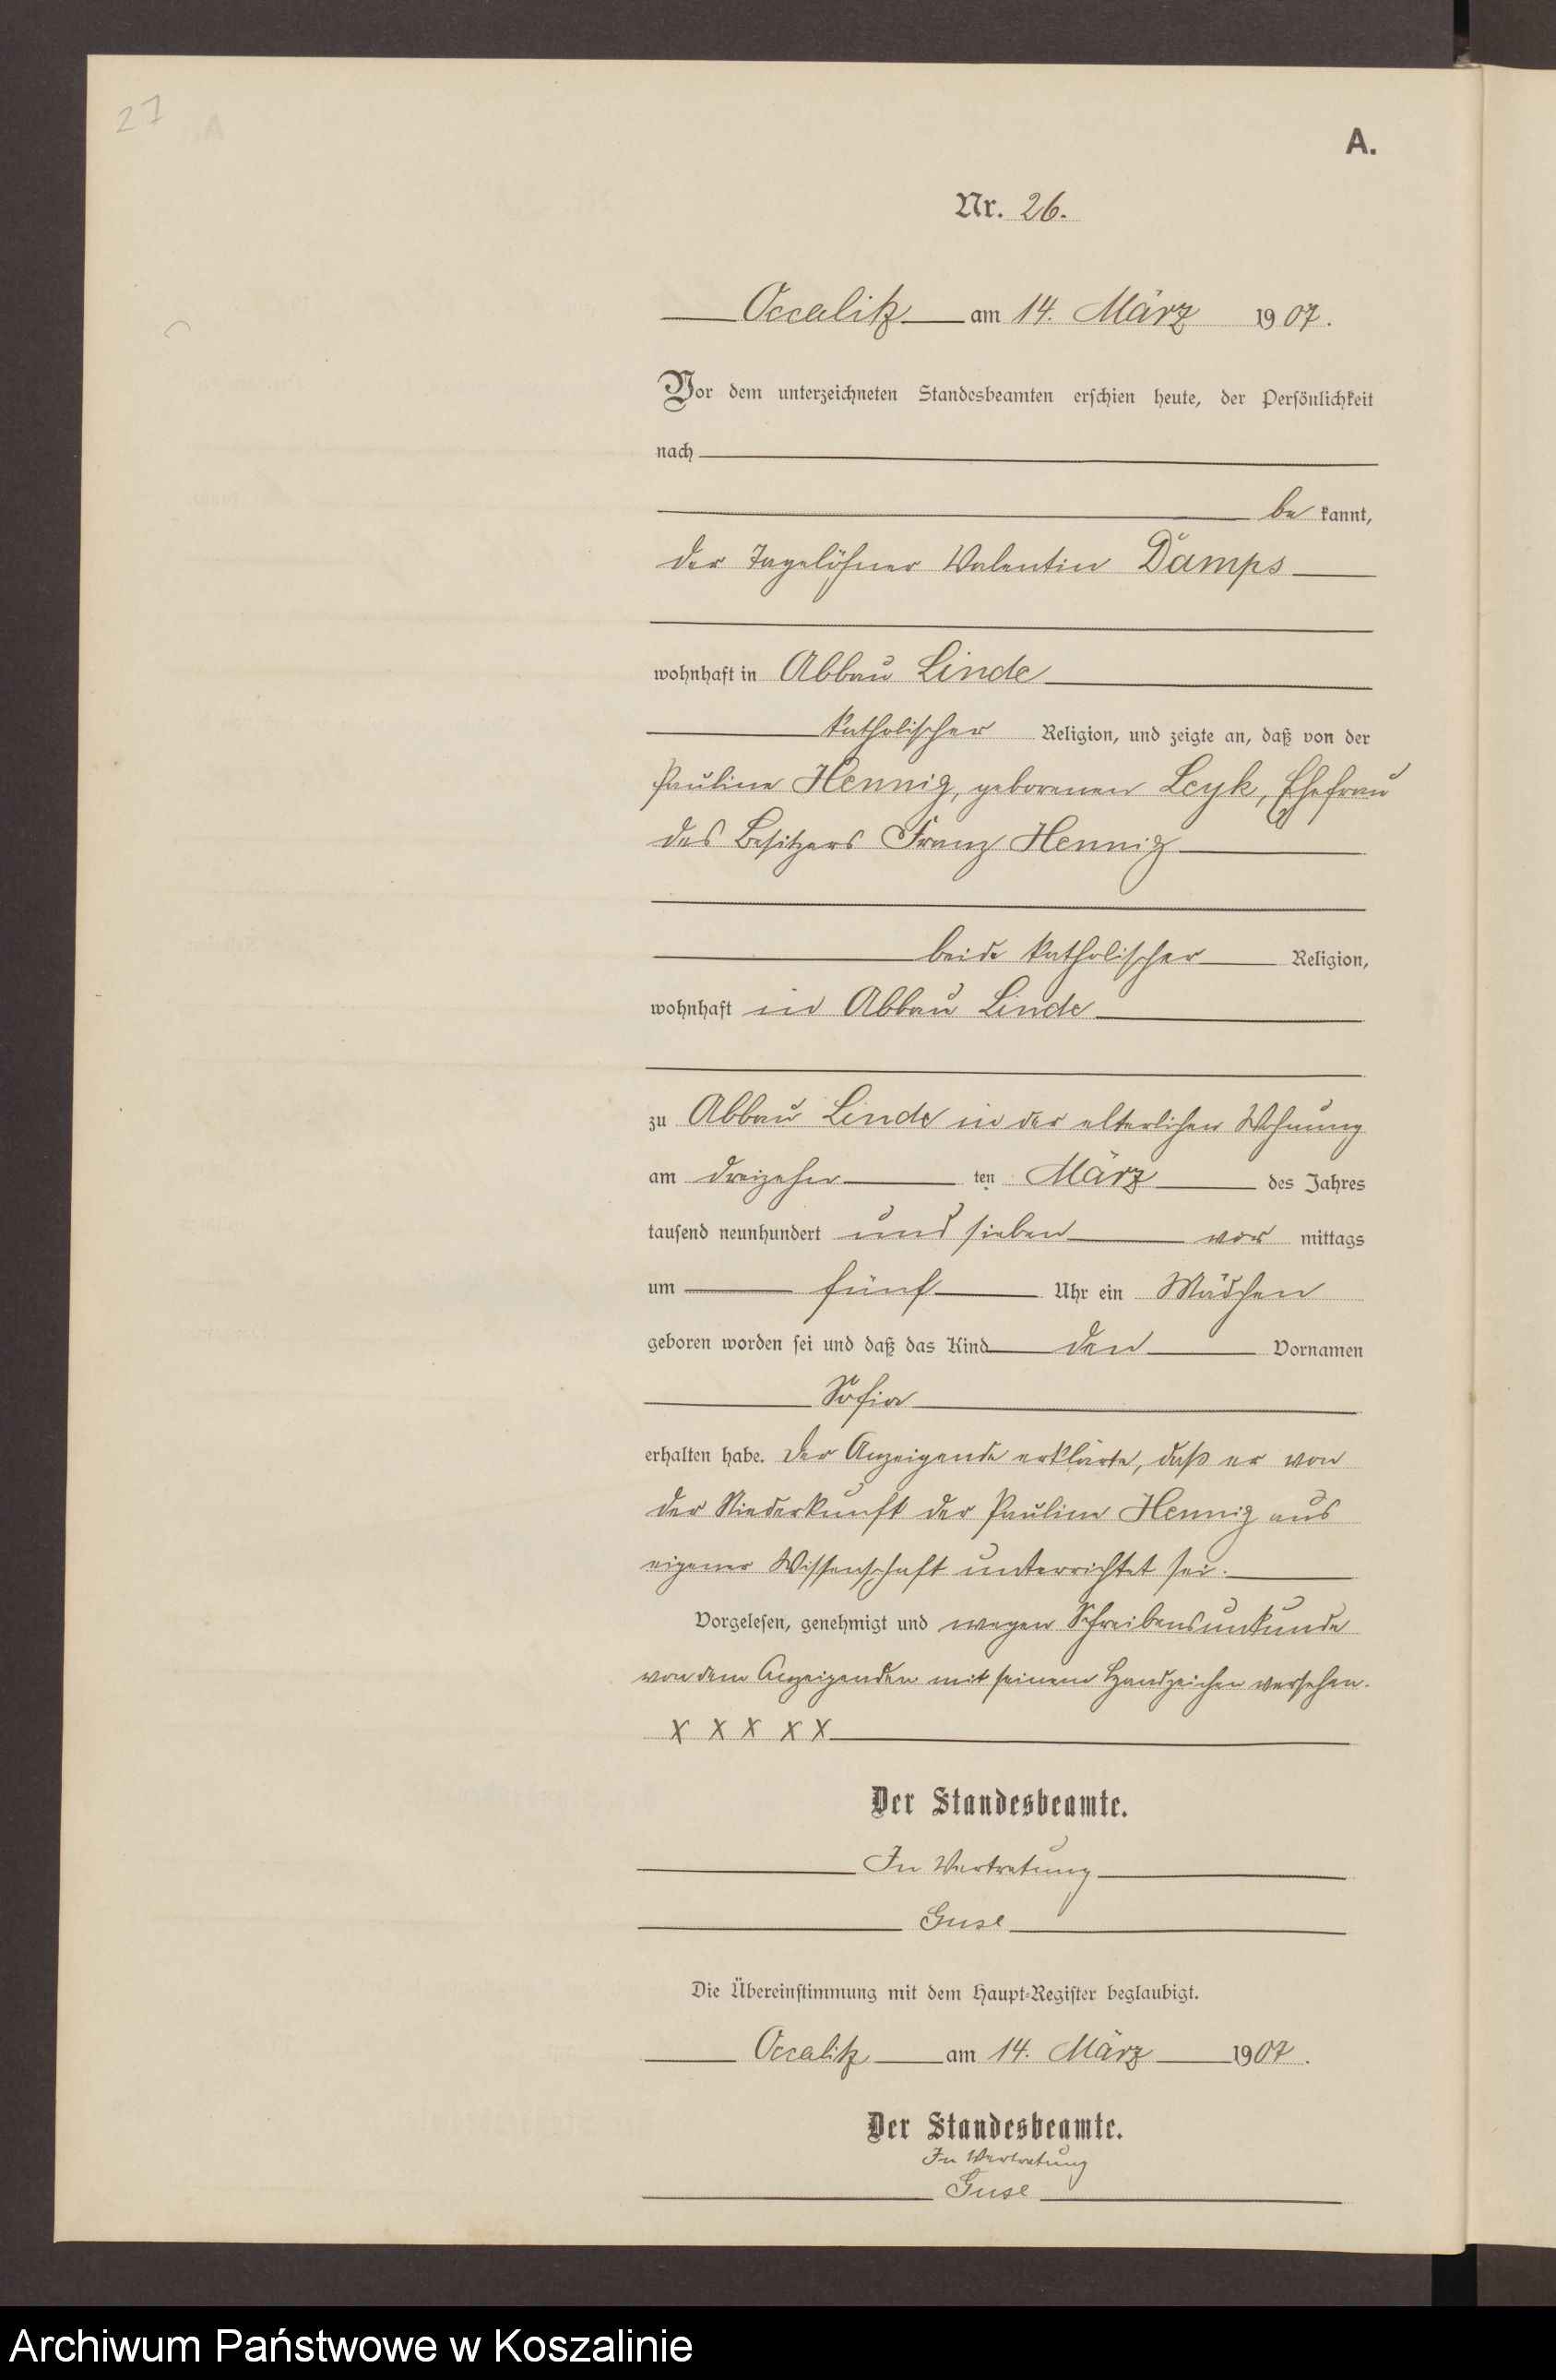 27
A.
Nr. 26.
Occalitz am 14. März 1907.
Vor dem unterzeichneten Standesbeamten erschien heute, der Persönlichkeit
nach
be kannt,
der Tagelöhner Valentin Damps
wohnhaft in Abbau Linde
katholischer Religion, und zeigte an, daß von der
Pauline Hennig, geborenen Leyk, Ehefrau
des Besitzers Franz Hennig
beide katholischer Religion,
wohnhaft in Abbau Linde
zu Abbau Linde in der elterlichen Wohnung
am dreizehn ten März des Jahres
tausend neunhundert und sieben vor mittags
um fünf Uhr ein Mädchen
geboren worden sei und daß das Kind den Vornamen
Sofia
erhalten habe. Der Anzeigende erklärte, daß er von
der Niederkunft der Pauline Hennig aus
eigener Wissenschaft unterrichtet sei.
Vorgelesen, genehmigt und wegen Schreibensunkunde
von dem Anzeigenden mit seinem Handzeichen versehen.
X X X X X
Der Standesbeamte.
In Vertretung
Guse
Die Übereinstimmung mit dem Haupt-Register beglaubigt.
Occalitz am 14. März 1907.
Der Standesbeamte.
In Vertretung
Guse
Archiwum Państwowe w Koszalinie